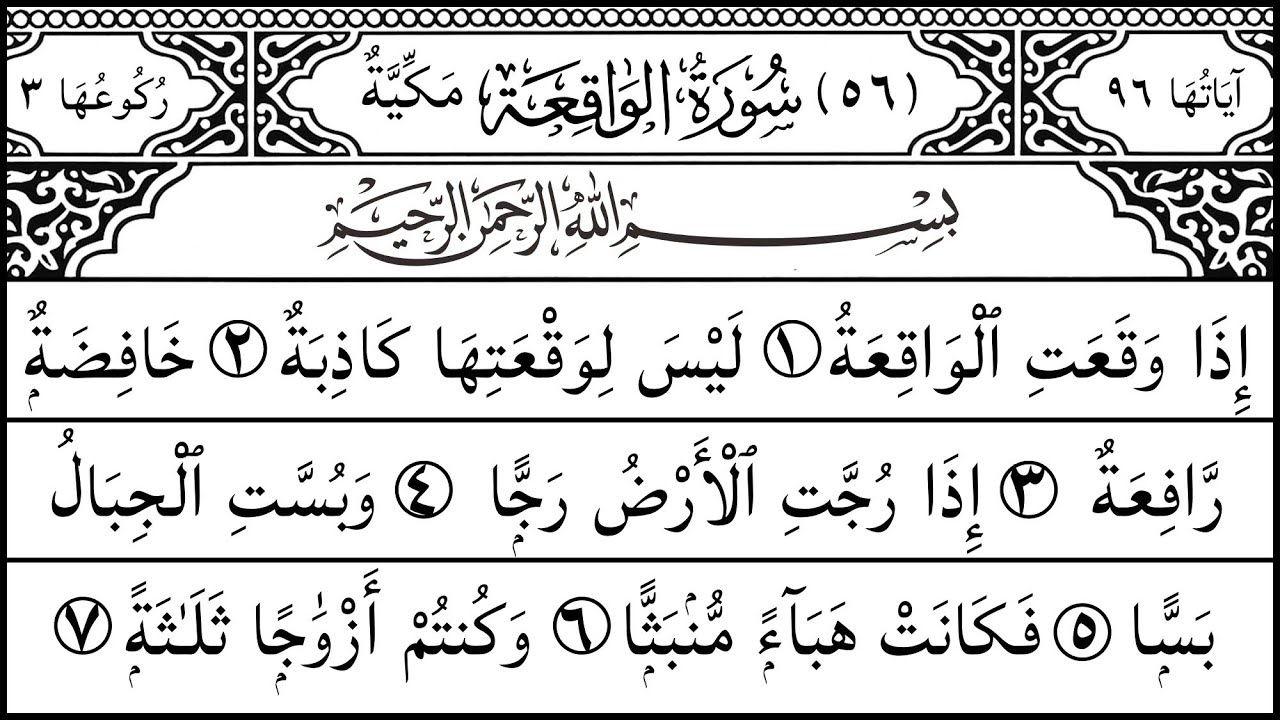 آيَاتُهَا ٩٦ (٥٦) سُورَةُ الوَاقِعَة مَكِّيَّةٌ رُكُوعُهَا ٣
بِسْمِ اللَّهِ الرَّحْمَٰنِ الرَّحِيمِ
إِذَا وَقَعَتِ ٱلْوَاقِعَةُ ١ لَيْسَ لِوَقْعَتِهَا كَاذِبَةٌ ٢ خَافِضَةٌ
رَّافِعَةٌ ٣ إِذَا رُجَّتِ ٱلْأَرْضُ رَجًّا ٤ وَبُسَّتِ ٱلْجِبَالُ
بَسًّا ٥ فَكَانَتْ هَبَآءً مُّنۢبَثًّا ٦ وَكُنتُمْ أَزْوَٰجًا ثَلَٰثَةً ٧